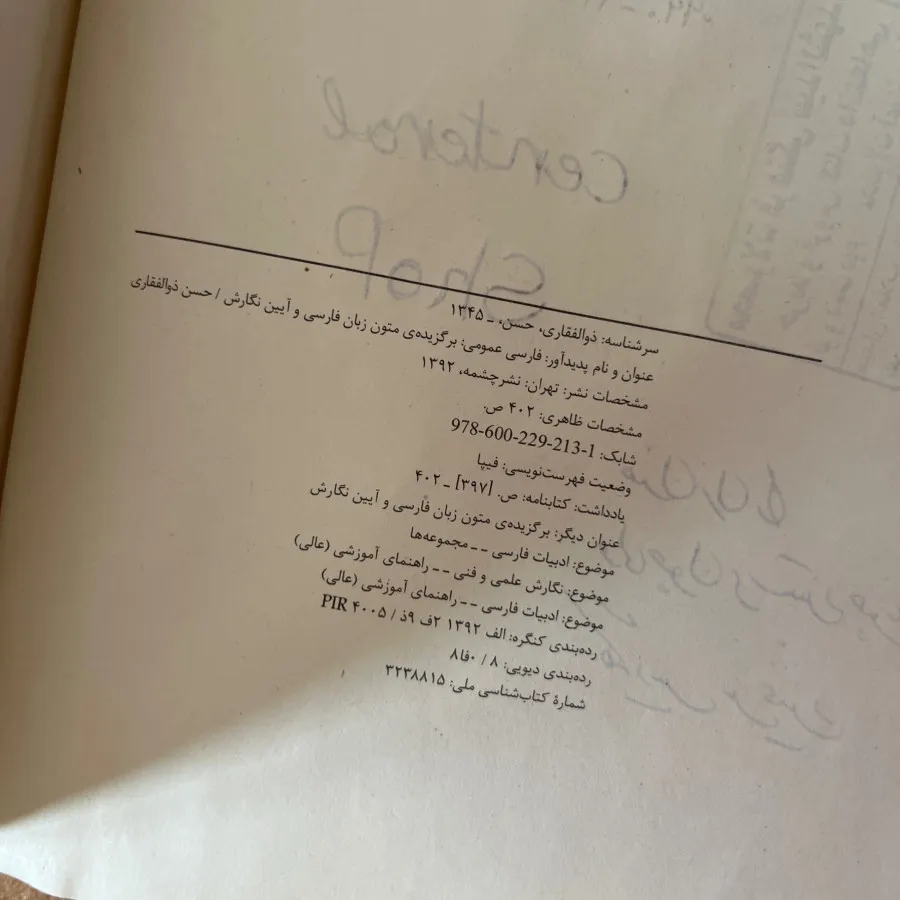 Centeral
Shop
سرشناسه: ذوالفقاری، حسن، ـ ۱۳۴۵
عنوان و نام پدیدآور: فارسی عمومی: برگزیده‌ی متون زبان فارسی و آیین نگارش / حسن ذوالفقاری
مشخصات نشر: تهران: نشرچشمه، ۱۳۹۲
مشخصات ظاهری: ۴۰۲ ص.
شابک: 978-600-229-213-1
وضعیت فهرست‌نویسی: فیپا
یادداشت: کتابنامه: ص. [۳۹۷] ـ ۴۰۲
عنوان دیگر: برگزیده‌ی متون زبان فارسی و آیین نگارش
موضوع: ادبیات فارسی ـ ـ مجموعه‌ها
موضوع: نگارش علمی و فنی ـ ـ راهنمای آموزشی (عالی)
موضوع: ادبیات فارسی ـ ـ راهنمای آموزشی (عالی)
رده‌بندی کنگره: الف ۱۳۹۲ ۲ف ۹ذ / PIR ۴۰۰۵
رده‌بندی دیویی: ۸ / ۰فا۸
شمارهٔ کتاب‌شناسی ملی: ۳۲۳۸۸۱۵